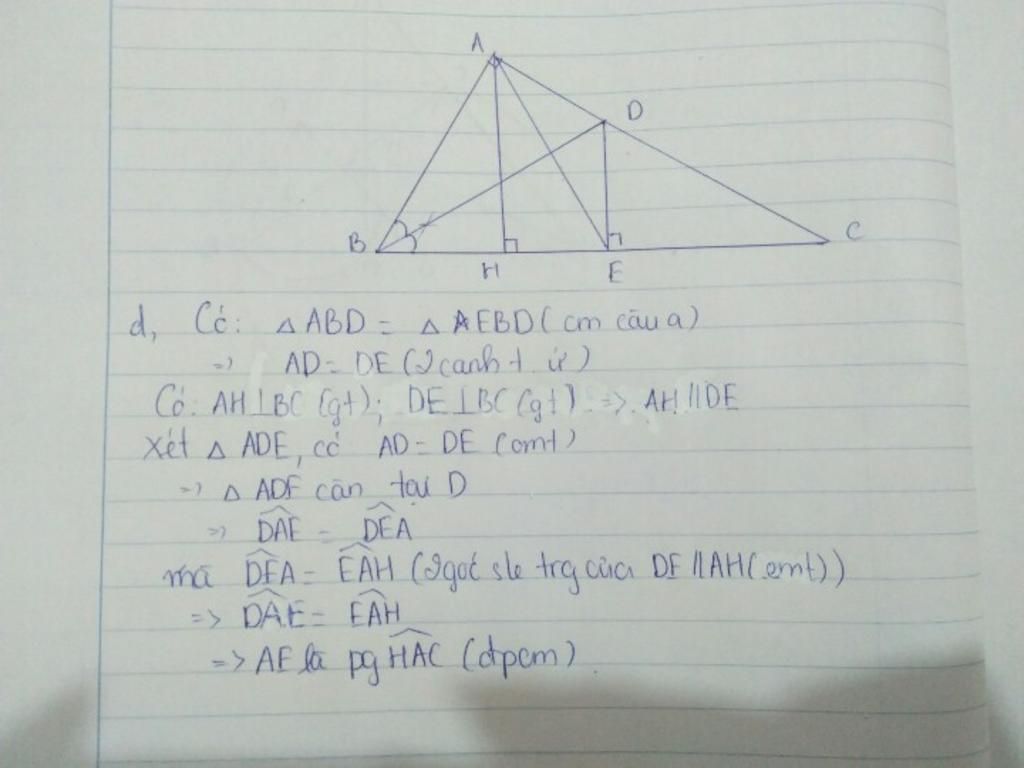 A
D
B
C
H
E
d, Có: △ ABD = △ AEBD (cm câu a)
=> AD = DE (2 cạnh t. ứ)
Có: AH⊥BC (gt); DE⊥BC (gt) => AH//DE
Xét △ ADE, có AD = DE (cmt)
=> △ ADE cân tại D
=> DAE = DEA
mà DEA = EAH (2 góc sle trg của DE//AH (cmt))
=> DAE = EAH
=> AE là pg HAC (đpcm)